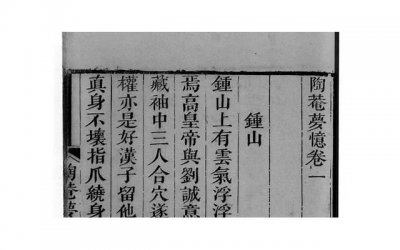 陶菴夢憶卷一
鍾山
鍾山上有雲氣浮浮
焉高皇帝與劉誠意
藏袖中三人合穴遂
權亦是好漢子留他
真身不壞指爪繞身